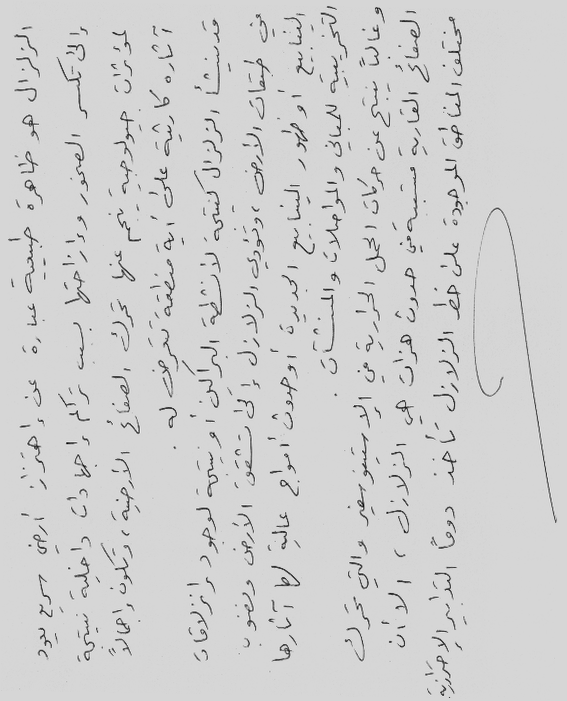 الزلزال هو ظاهرة طبيعية عبارة عن إهتزاز أرضي سريع يعود
إلى تكسر الصخور وإزاحتها بسبب تراكم إجهادات داخلية نتيجة
لمؤثرات جيولوجية ينجم عنها تحرك الصفائح الأرضية، وتكون إجمالاً
آثاره كارثية على أية منطقة تتعرض له .
قد ينشأ الزلزال كنتيجة لأنشطة البراكين أو نتيجة لوجود إنزلاقات
في طبقات الأرض، وتؤدي الزلازل إلى تشقق الأرض ونضوب
الينابيع أو ظهور الينابيع الجديدة أو حدوث أمواج عالية لها آثارها
التخريبية للمباني والمواصلات والمنشآت .
وغالباً ينتج عن حركات الحمل الحرارية في الإستينوسفير والتي تحرك
الصفائح القارية متسببة في حدوث هزات هي الزلازل، الا أن
مختلف المناطق الموجودة على خط الزلازل تأخذ دوماً التدابير الإحترازية